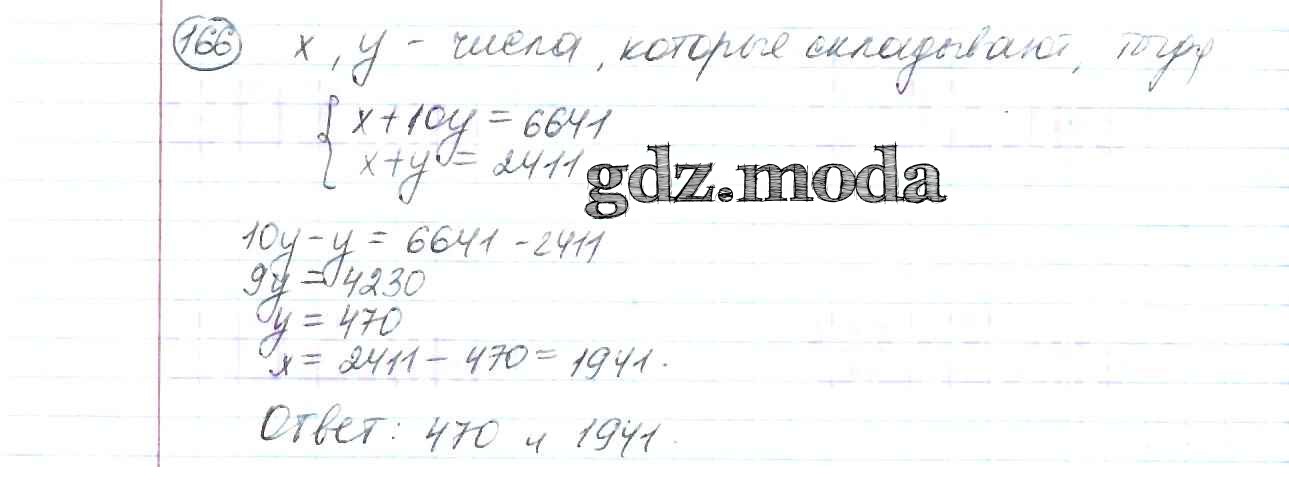 166 x, y - числа, которые складывают, тогда
x+10y = 6641
x+y = 2411
gdz.moda
10y-y = 6641-2411
9y = 4230
y = 470
x = 2411 - 470 = 1941.
Ответ: 470 и 1941.